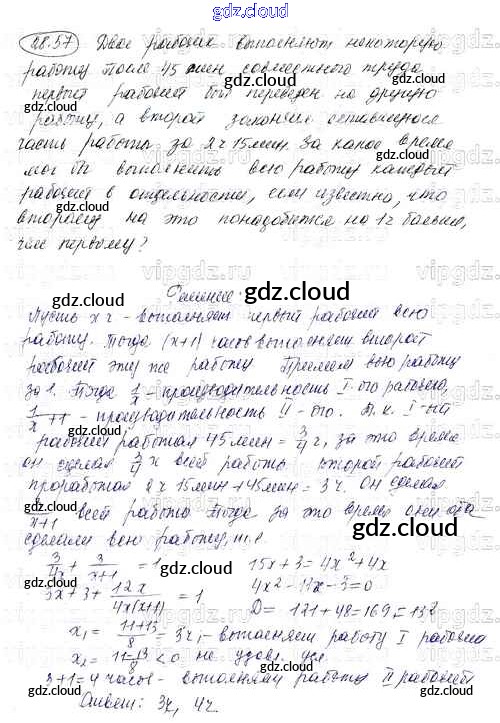 gdz.cloud
28.57 Двое рабочих выполняют некоторую
работу. После 45 мин совместного труда
первый рабочий был переведен на другую
работу, а второй закончил оставшуюся
часть работы за 2ч 15мин. За какое время
мог бы выполнить всю работу каждый
рабочий в отдельности, если известно, что
второму на это понадобится на 1ч больше,
чем первому?
Решение:
gdz.cloud
Пусть x ч - выполняет первый рабочий всю
работу. Тогда (x+1) часов выполняет второй
рабочий эту же работу. Примем всю работу
за 1. Тогда 1/x - производительность I-ого рабочего,
1/x+1 - производительность II-ого. Т.к. I-ый
рабочий работал 45мин = 3/4 ч, за это время
он сделал 3/4 x всей работы, второй рабочий
проработал 2ч 15мин + 45мин = 3ч. Он сделал
3/x+1 всей работы. Тогда за это время они оба
сделали всю работу, т.е.
3/4x + 3/x+1 = 1 15x+3 = 4x²+4x
3x+3+12x / 4x(x+1) = 1 4x²-11x-3=0
D = 121+48=169=13²
x₁ = 11+13/8 = 3ч - выполняет работу I рабочий
x₂ = 11-13/8 < 0 не удовл. усл.
3+1=4 часов - выполняет работу II рабочий
Ответ: 3ч, 4ч.